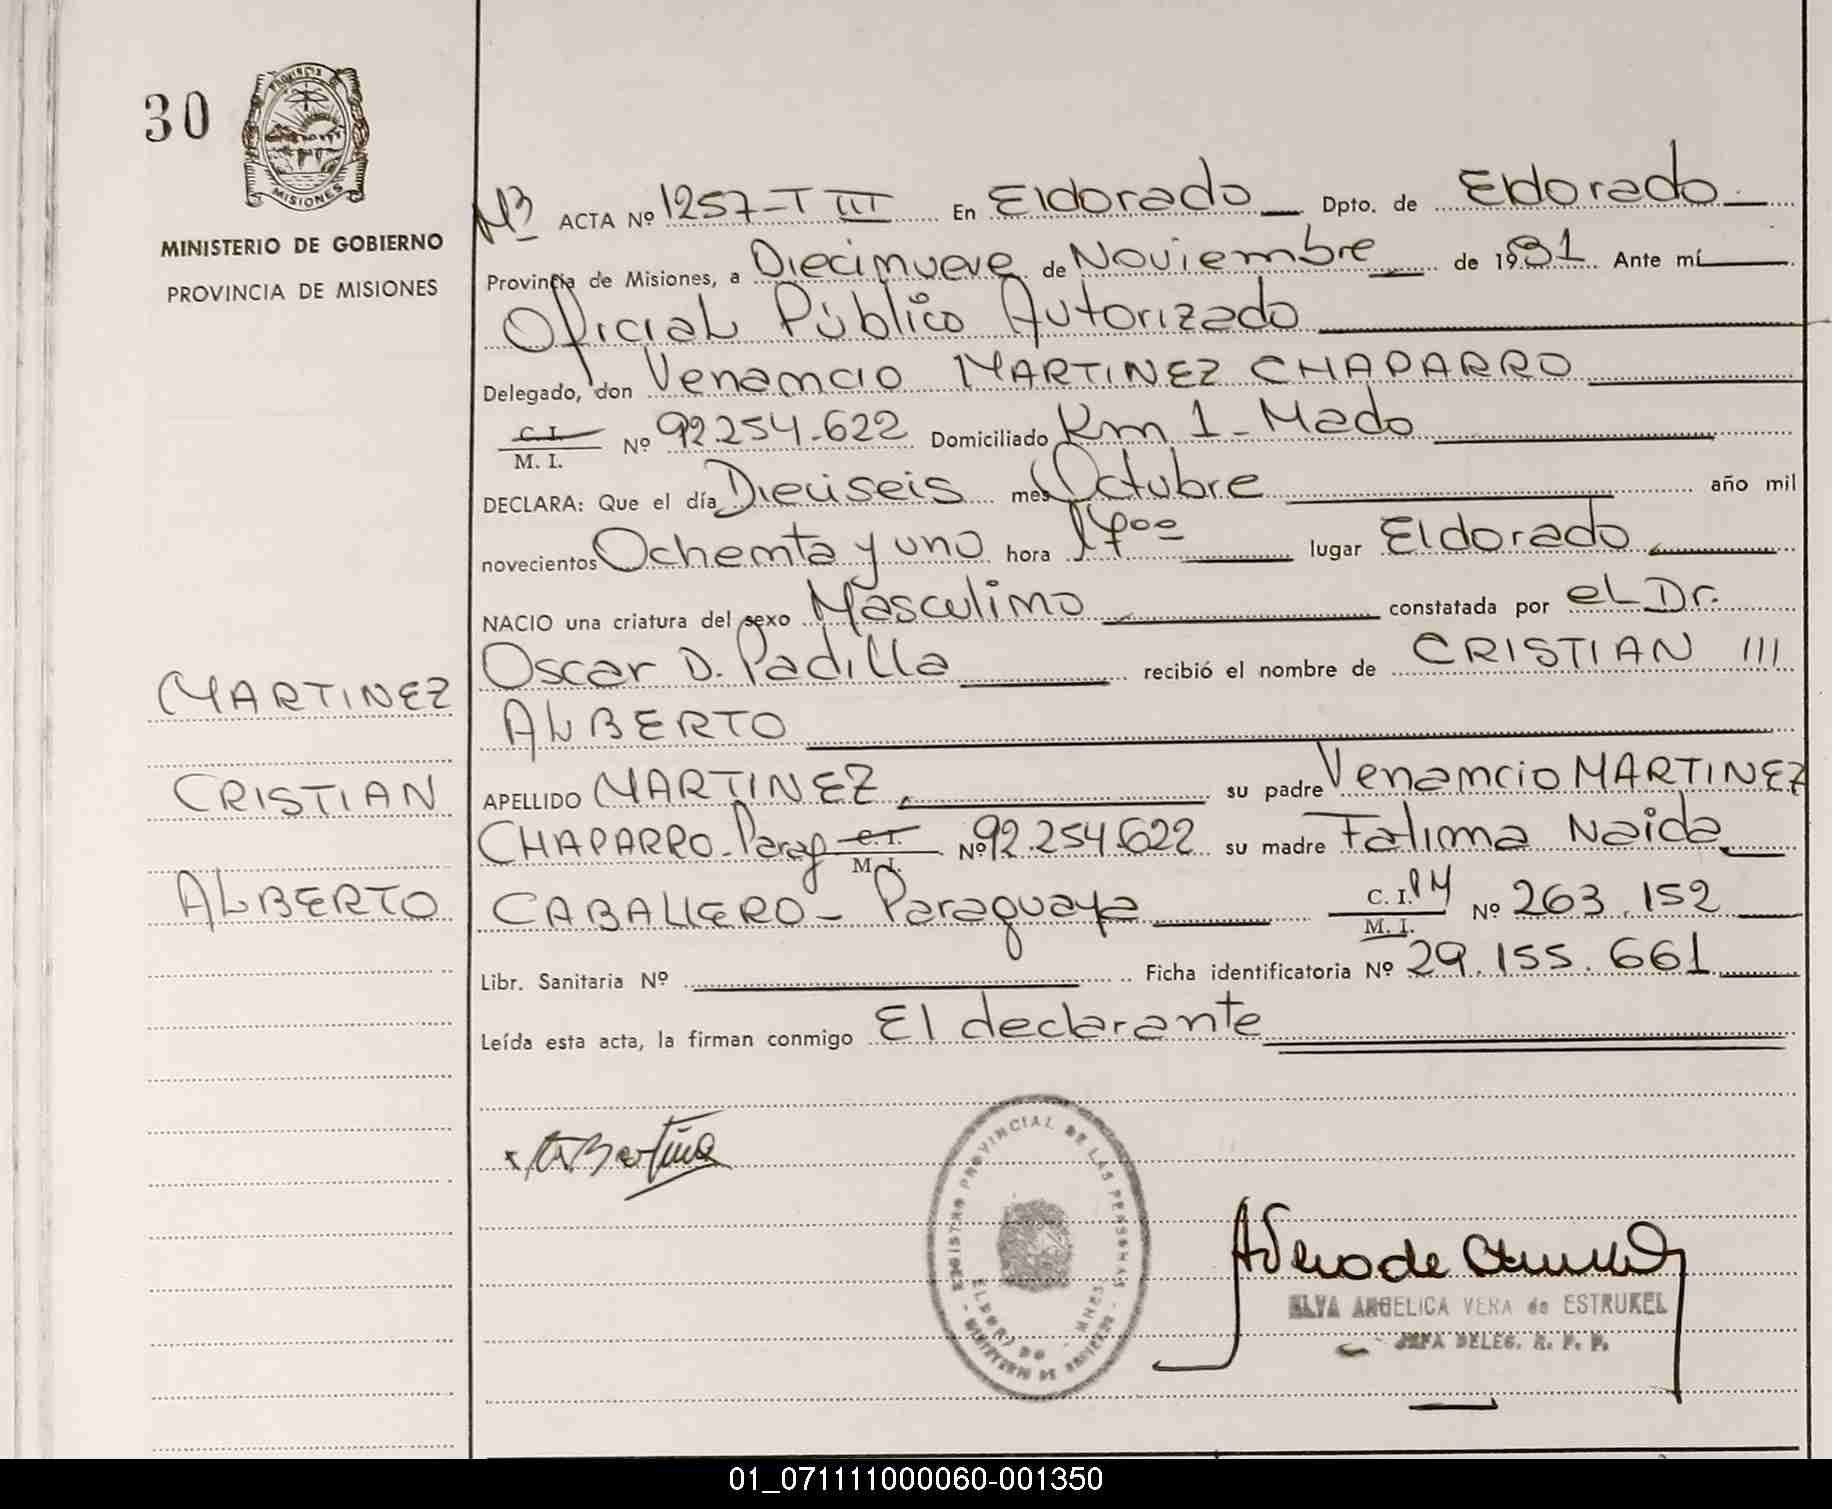 30
PROVINCIA DE
MISIONES
MINISTERIO DE GOBIERNO
PROVINCIA DE MISIONES
ACTA Nº 1257-T III En Eldorado Dpto. de Eldorado
Provincia de Misiones, a Diecinueve de Noviembre de 1981 Ante mí
Oficial Público Autorizado
Delegado, don Venancio MARTINEZ CHAPARRO
C. I.
M. I. Nº 92.254.622 Domiciliado Km 1 - Mado
DECLARA: Que el día Dieciseis mes Octubre año mil
novecientos Ochenta y uno hora 17ºº lugar Eldorado
NACIO una criatura del sexo Masculino constatada por el Dr.
Oscar D. Padilla recibió el nombre de CRISTIAN ///
ALBERTO
APELLIDO MARTINEZ su padre Venancio MARTINEZ
CHAPARRO - Parag C. I.
M. I. Nº 92.254.622 su madre Fatima Naida
CABALLERO - Paraguaya C. I.
M. I. Nº 263.152
Libr. Sanitaria Nº Ficha identificatoria Nº 29.155.661
Leída esta acta, la firman conmigo El declarante
MARTINEZ
CRISTIAN
ALBERTO
REGISTRO PROVINCIAL DE LAS PERSONAS
ELDORADO - MNES
MINISTERIO DE GOBIERNO
ELVA ANGELICA VERA de ESTRUKEL
JEFA DELEG. R. P. P.
01_071111000060-001350